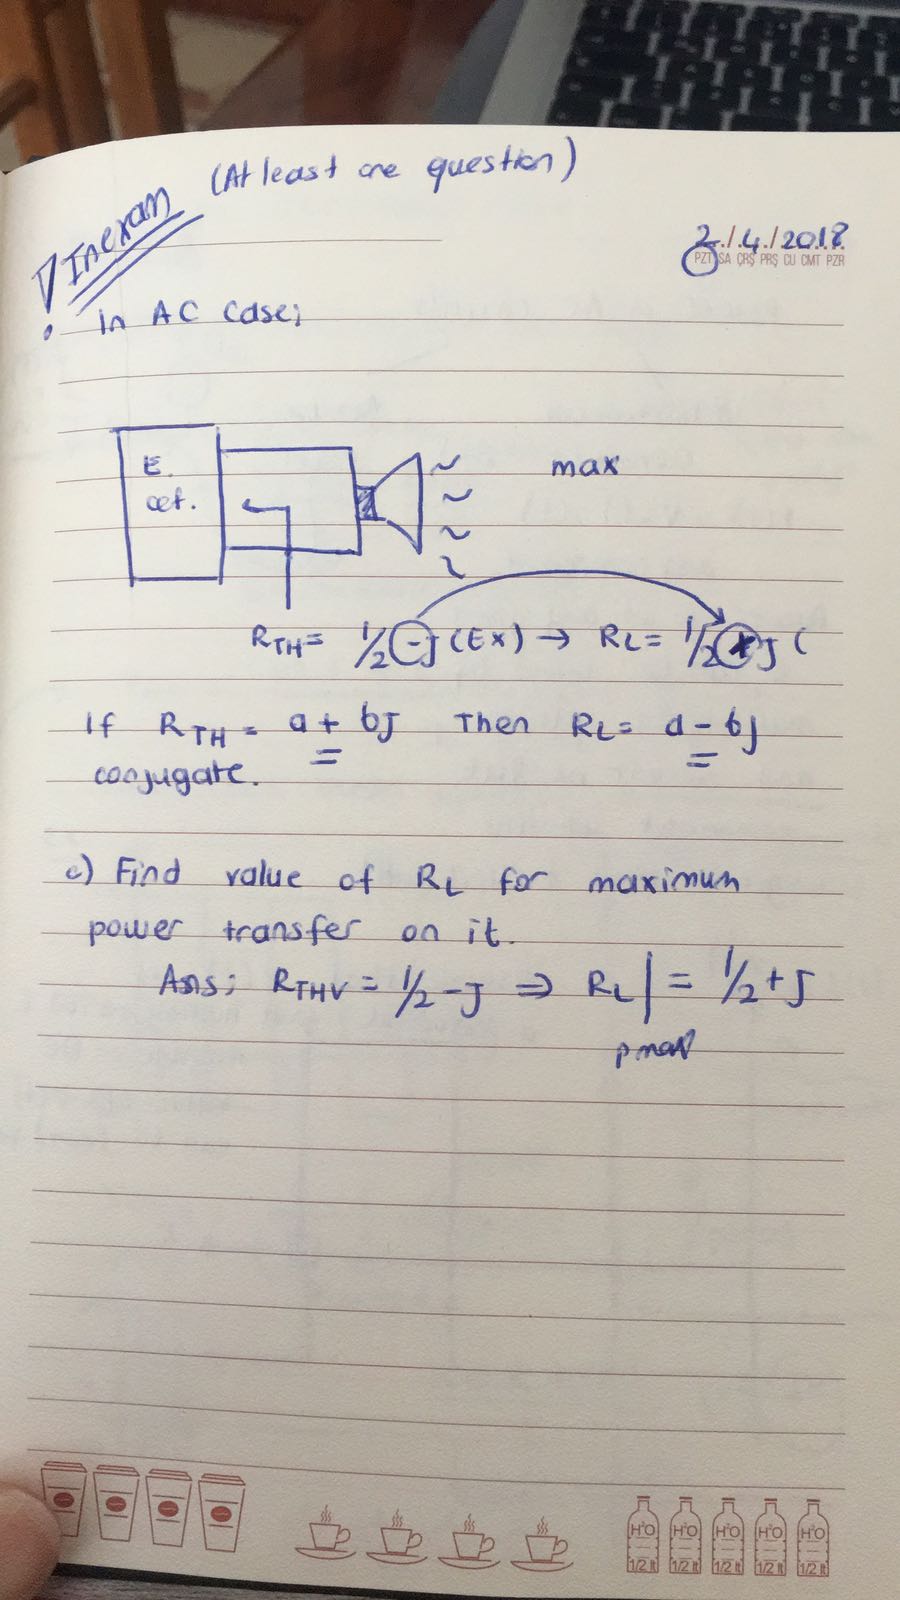 ! In exam (At least one question)
2./.4./2018
PZT SA ÇRŞ PRŞ CU CMT PZR
In AC case;
E.
cct.
max
RTH = 1/2 - j (Ex) → RL = 1/2 + j (
If RTH = a + bj Then RL = a - bj
conjugate.
c) Find value of RL for maximum
power transfer on it.
Ans; RTHV = 1/2 - j ⇒ RL | = 1/2 + j
pmax
H²O H²O H²O H²O H²O
1/2 lt 1/2 lt 1/2 lt 1/2 lt 1/2 lt